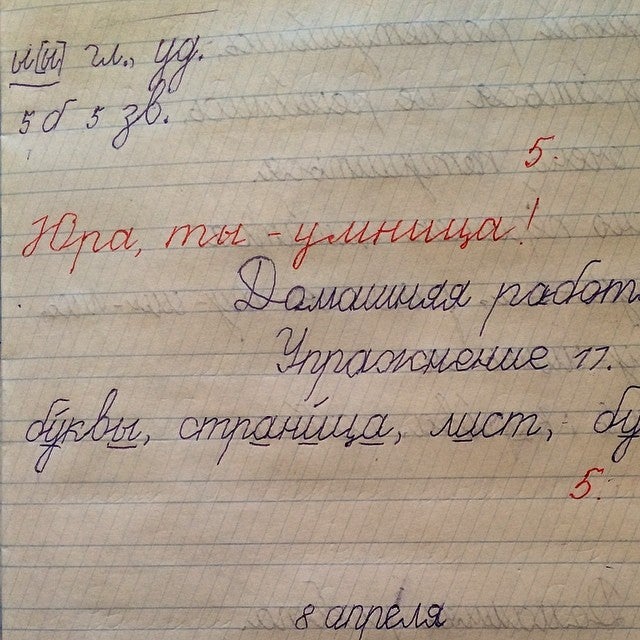 ы [ы] гл., уд.
5 б 5 зв.
5.
Юра, ты - умница!
Домашняя работ
Упражнение 11.
бу́квы, страни́ца, лист, бу
5.
8 апреля